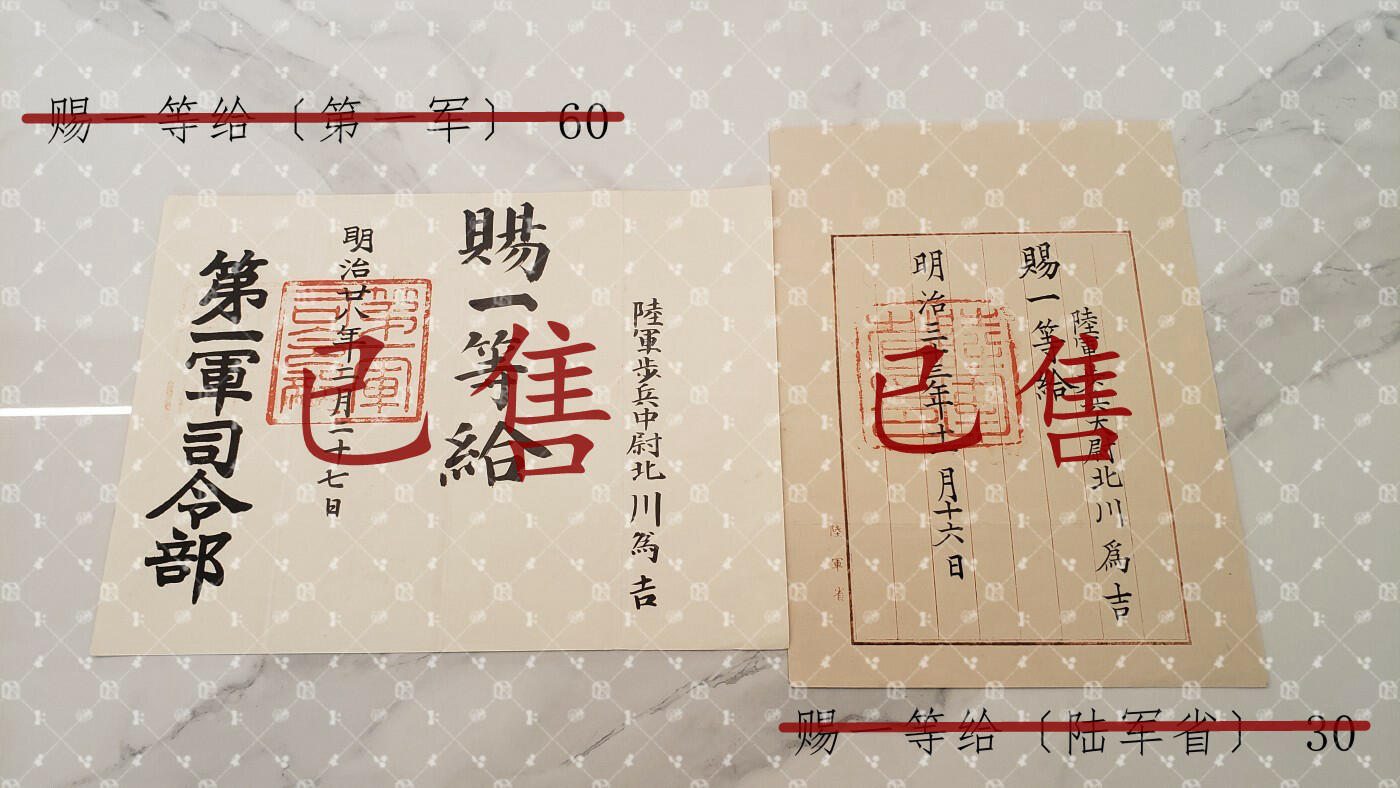 赐一等给〔第一军〕 60
陸軍步兵中尉北川為吉
賜一等給
明治廿八年二月二十七日
第一軍司令部
已售
陸軍大尉北川為吉
賜一等給
明治三十三年十一月十六日
陸軍省
已售
赐一等给〔陆军省〕 30